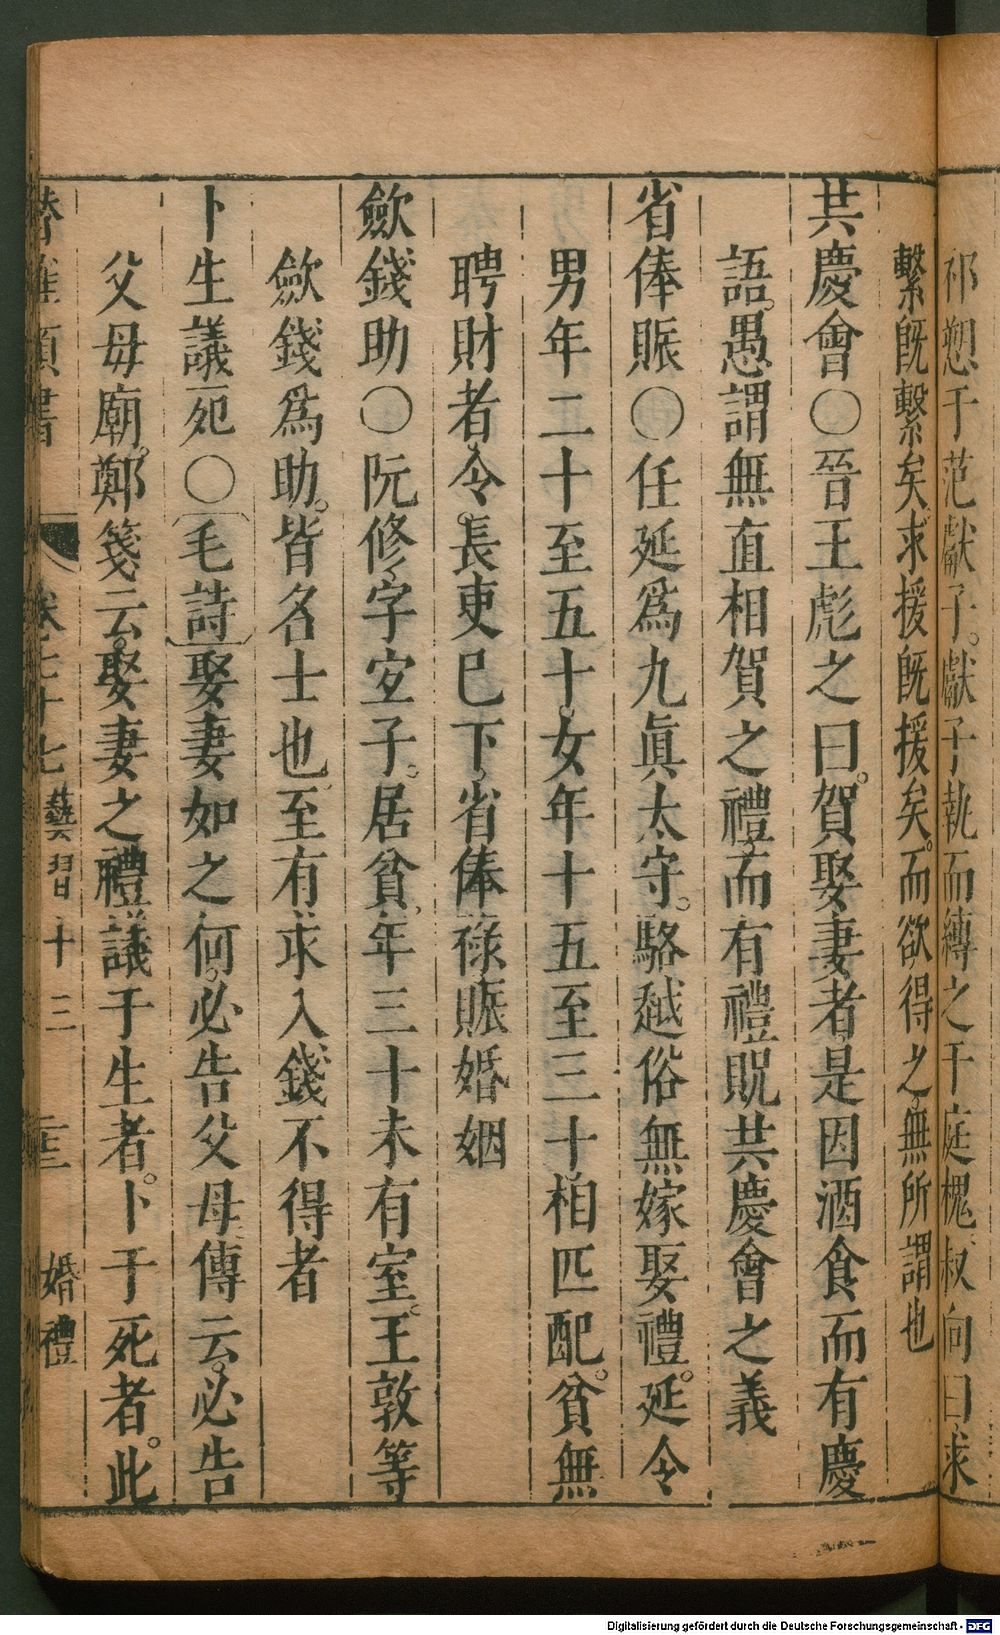 祁愬于范獻子。獻子執而縛之于庭槐。叔向曰求
繫旣繫矣。求援旣援矣。而欲得之無所謂也
共慶會〇晉王彪之曰。賀娶妻者。是因酒食而有慶
語。愚謂無直相賀之禮。而有禮貺共慶會之義
省俸賑〇任延爲九眞太守。駱越俗無嫁娶禮。延令
男年二十至五十。女年十五至三十相匹配。貧無
聘財者。令。長吏已下。省俸祿賑婚姻
歛錢助〇阮修。字宣子。居貧。年三十未有室。王敦等
歛錢爲助。皆名士也。至有求入錢不得者
卜生議死〇毛詩娶妻如之何。必告父母。傳云。必告
父母廟。鄭箋云。娶妻之禮。議于生者。卜于死者。此
卷七十七 藝習十三 婚禮
Digitalisierung gefördert durch die Deutsche Forschungsgemeinschaft - DFG